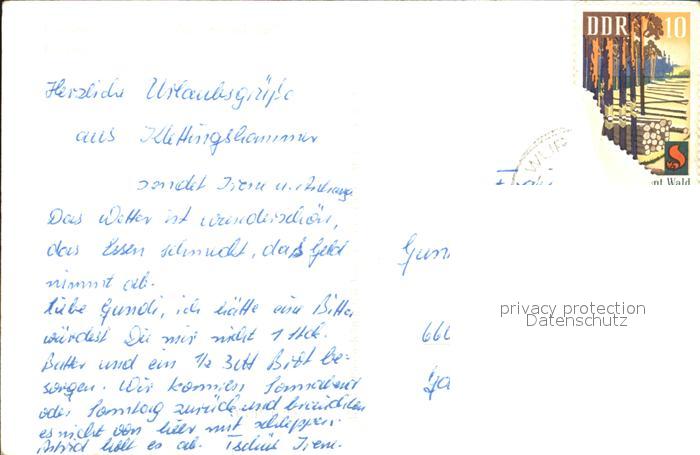 Herzliche Urlaubsgrüße
aus Klettingshammer
sendet Irene u.
Das Wetter ist wunderschön,
das Essen schmeckt, daß Geld
nimmt ab.
Liebe Gundi, ich hätte eine Bitte
würdest Du mir nicht 1 Stck.
Butter und ein 1/2 Brot be-
sorgen. Wir kommen Sonnabend
oder Sonntag zurück und brauchten
es nicht von hier mit schleppen.
Astrid holt es ab. Tschüß Irene.
DDR 10
Wald
Gun
660
privacy protection
Datenschutz